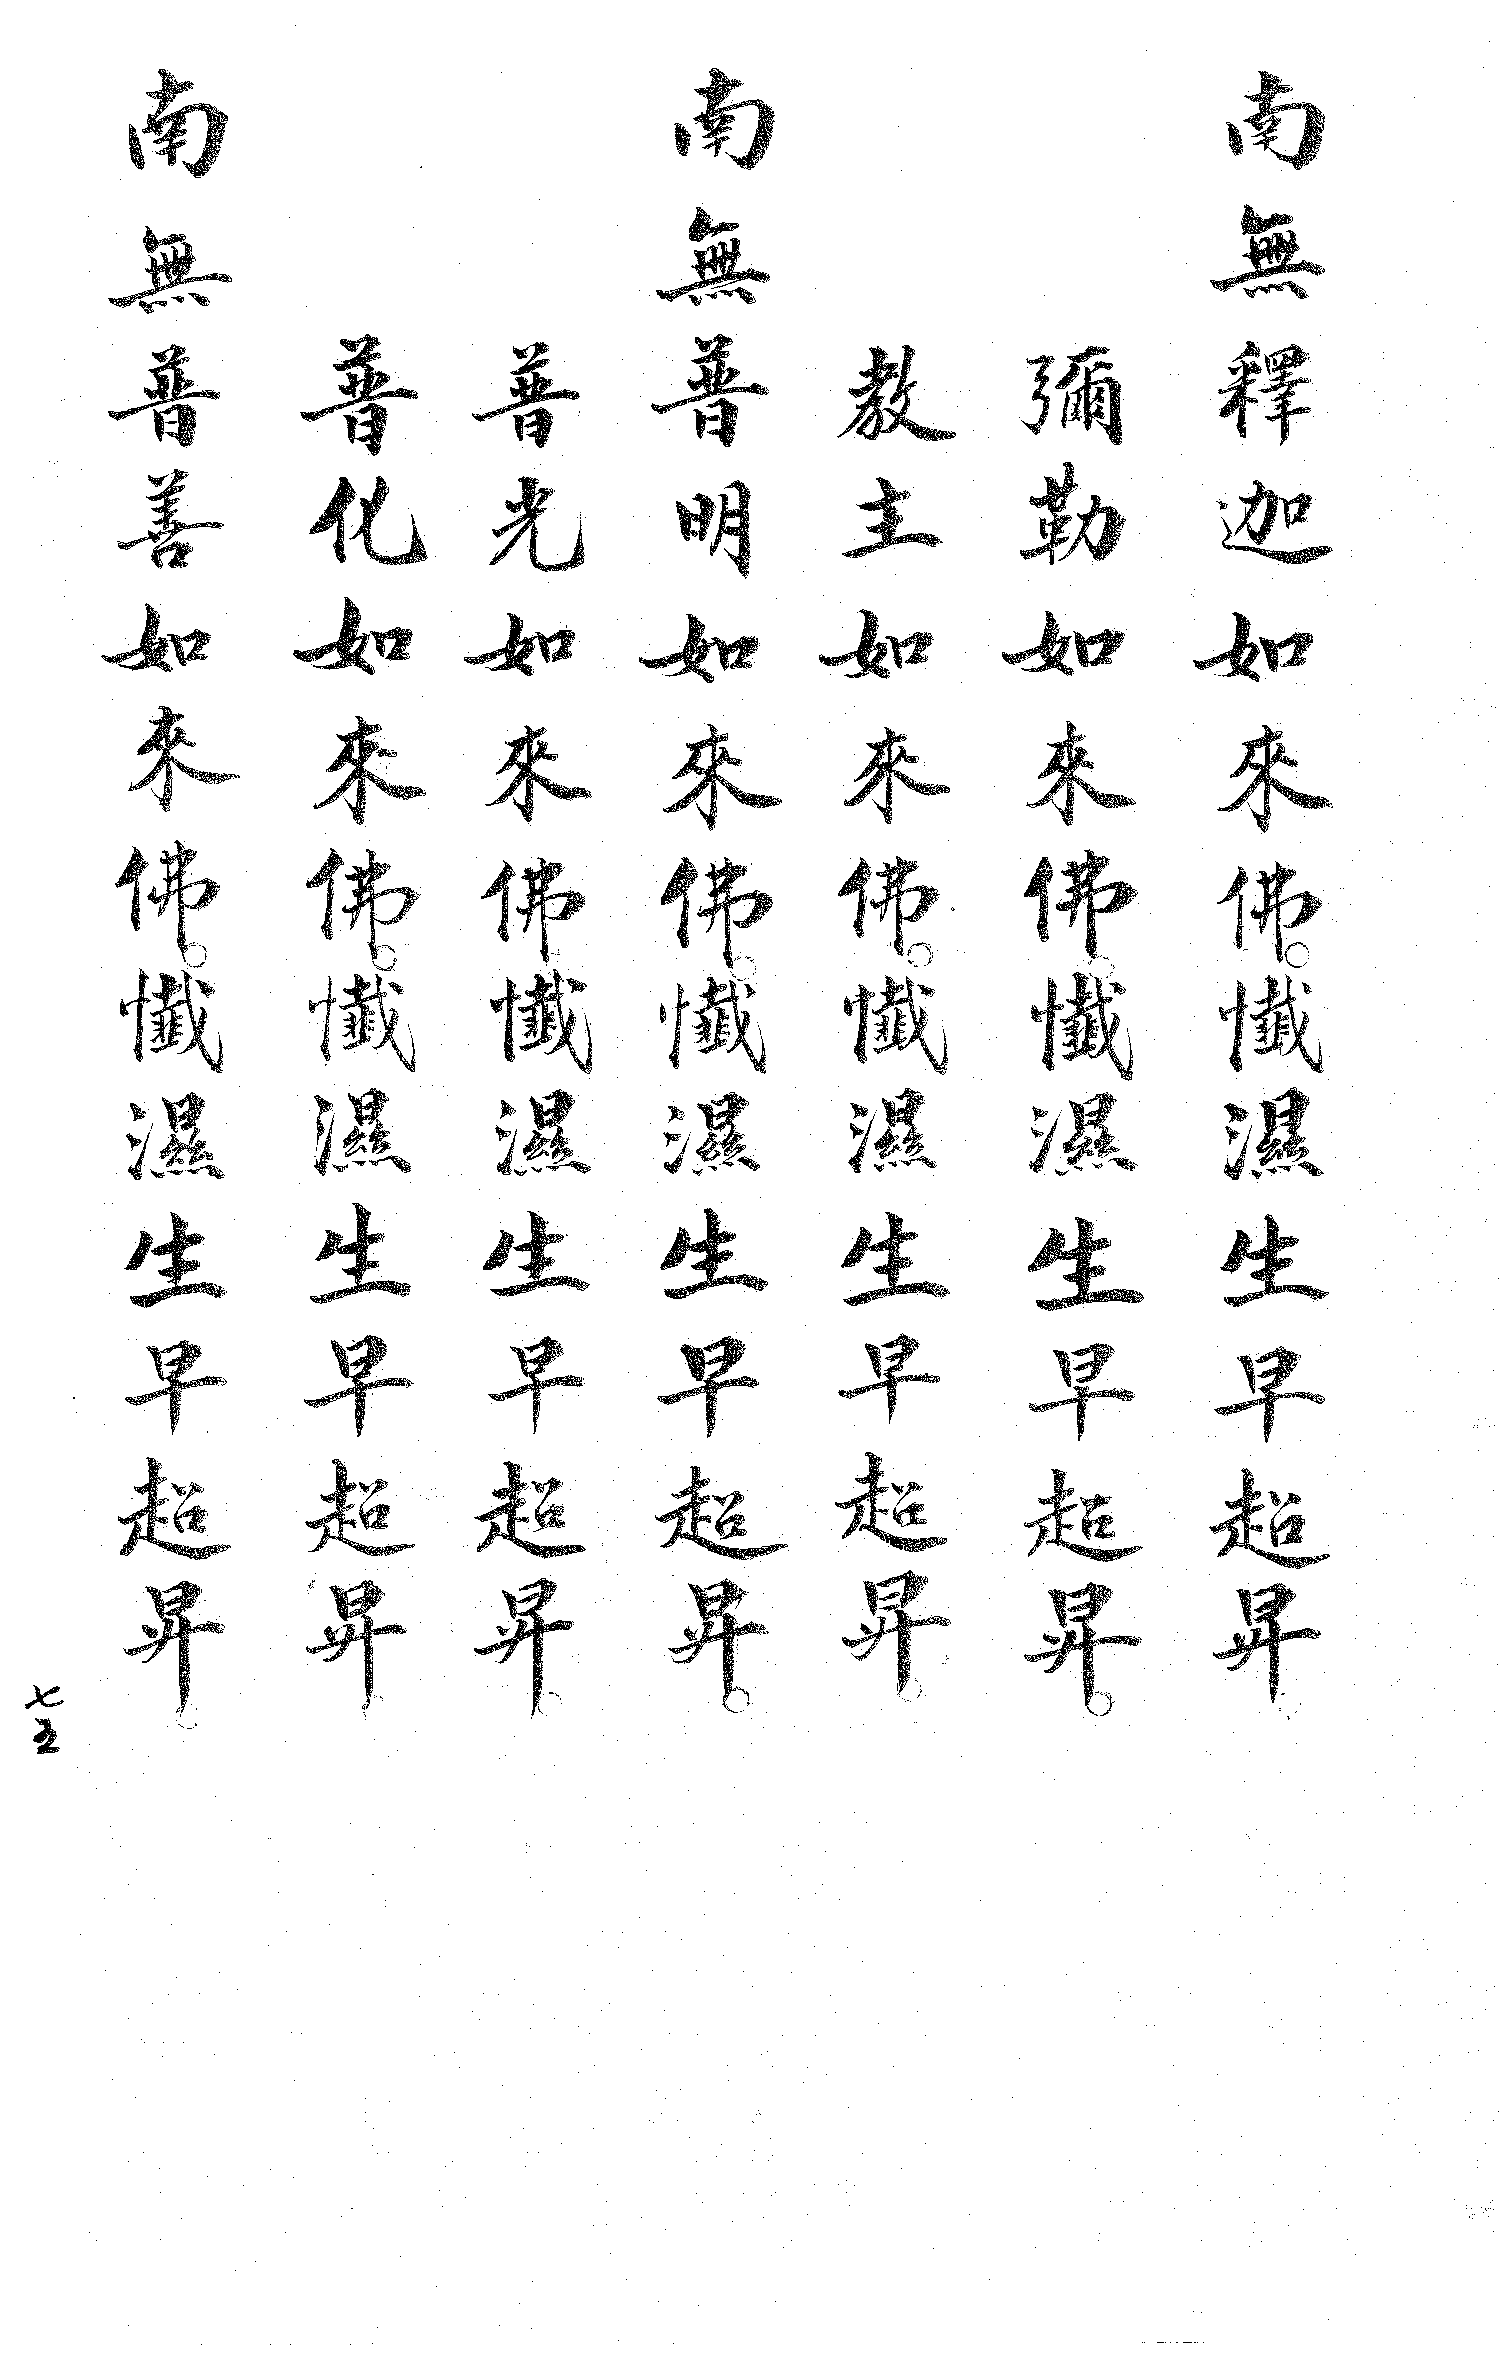 南無釋迦如來佛。懺濕生早超昇。
彌勒如來佛。懺濕生早超昇。
教主如來佛。懺濕生早超昇。
南無普明如來佛。懺濕生早超昇。
普光如來佛。懺濕生早超昇。
普化如來佛。懺濕生早超昇。
南無普善如來佛。懺濕生早超昇。
七五